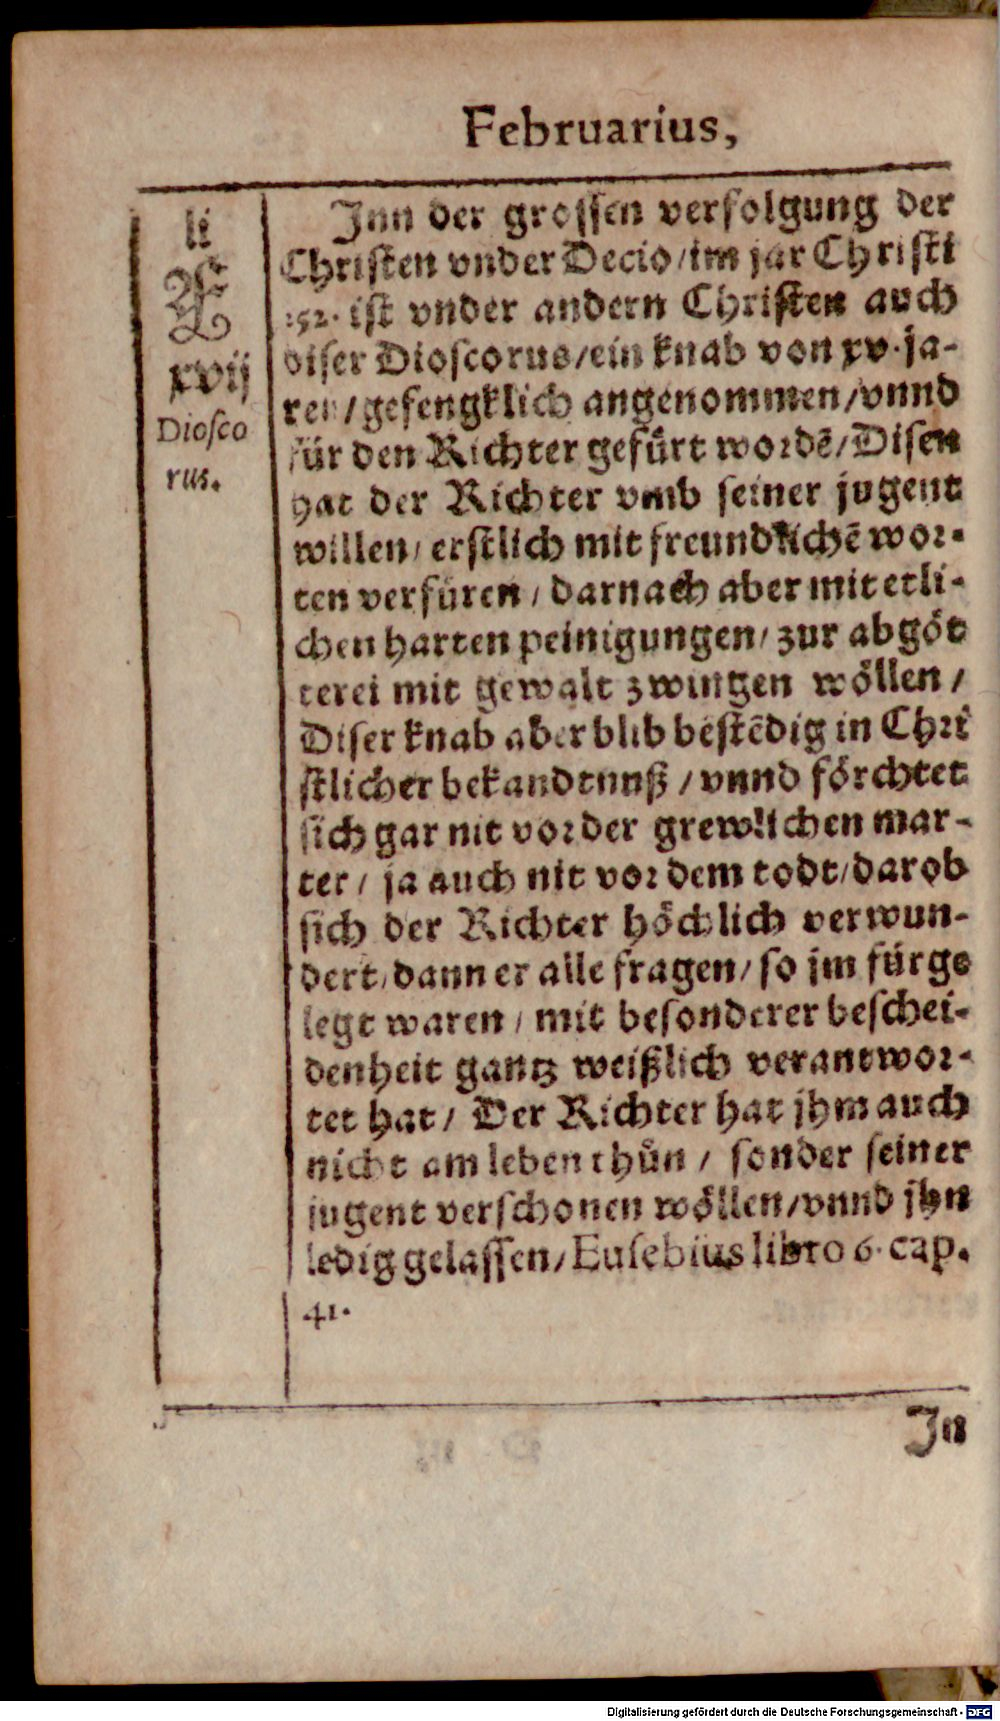 Februarius,
li
F
xvij
Diosco
rus.
Inn der grossen verfolgung der
Christen vnder Decio/im jar Christi
252. ist vnder andern Christen auch
diser Dioscorus/ein knab von xv. ja-
ren/gefengklich angenommen/vnnd
für den Richter gefürt wordē/Disen
hat der Richter vmb seiner jugent
willen/erstlich mit freundlichē wor-
ten verfüren/darnach aber mit etli-
chen harten peinigungen/zur abgöt
terei mit gewalt zwingen wöllen/
Diser knab aber blib bestēdig in Chri
stlicher bekandtnuß/vnnd förchtet
sich gar nit vor der grewlichen mar-
ter/ja auch nit vor dem todt/darob
sich der Richter höchlich verwun-
dert/dann er alle fragen/so jm fürge
legt waren/mit besonderer beschei-
denheit gantz weißlich verantwor-
tet hat/Der Richter hat jhm auch
nicht am leben thůn/sonder seiner
jugent verschonen wöllen/vnnd jhn
ledig gelassen/Eusebius libro 6. cap.
41.
In
Digitalisierung gefördert durch die Deutsche Forschungsgemeinschaft - DFG